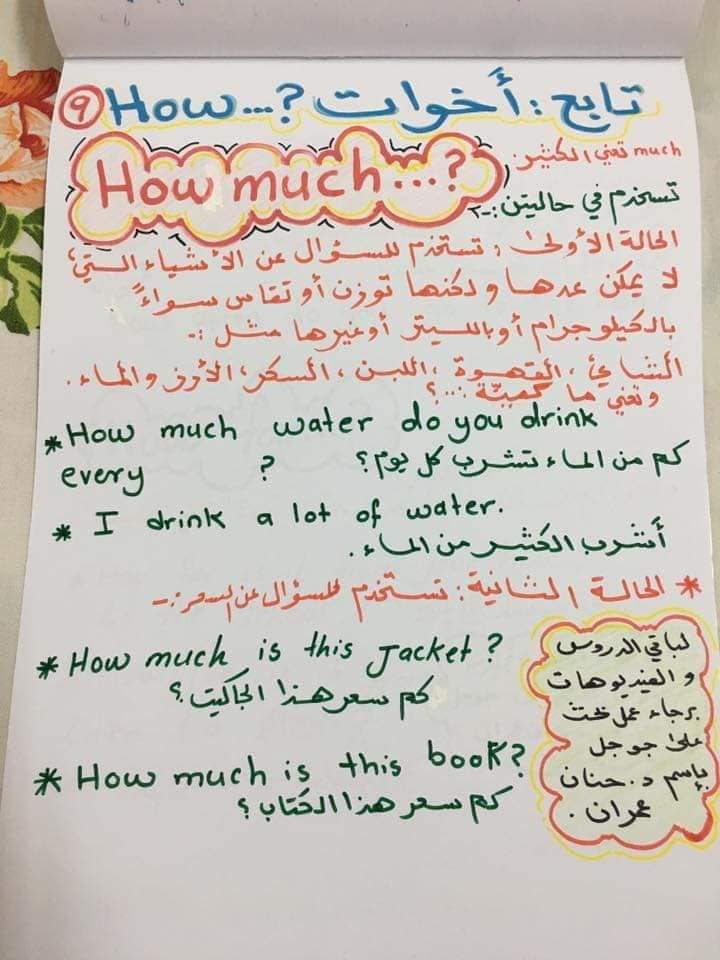 تابع : أخوات How...? ٩
How much...?
much تعني الكثير.
تستخدم في حالتين :-
الحالة الأولى : تستخدم للسؤال عن الأشياء التي
لا يمكن عدها ولكنها توزن أو تقاس سواءً
بالكيلوجرام أو بالليتر أو غيرها مثل :-
الشاي ، القهوة ، اللبن ، السكر ، الأرز والماء .
وتعني ما كميّة ...؟
* How much water do you drink
every ?
كم من الماء تشرب كل يوم ؟
* I drink a lot of water.
أشرب الكثير من الماء .
* الحالة الثانية : تستخدم للسؤال عن السعر :-
* How much is this Jacket ?
كم سعر هذا الجاكيت ؟
* How much is this book?
كم سعر هذا الكتاب ؟
لباقي الدروس
و الفيديوهات
برجاء عمل بحث
على جوجل
بإسم د. حنان
عمران .